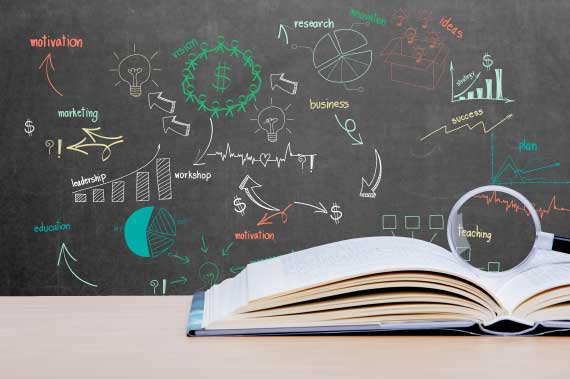 motivation
vision
research
innovation
ideas
strategy
$
$
marketing
$
business
success
?!
?!
plan
leadership
workshop
$
$
teaching
education
motivation
?!